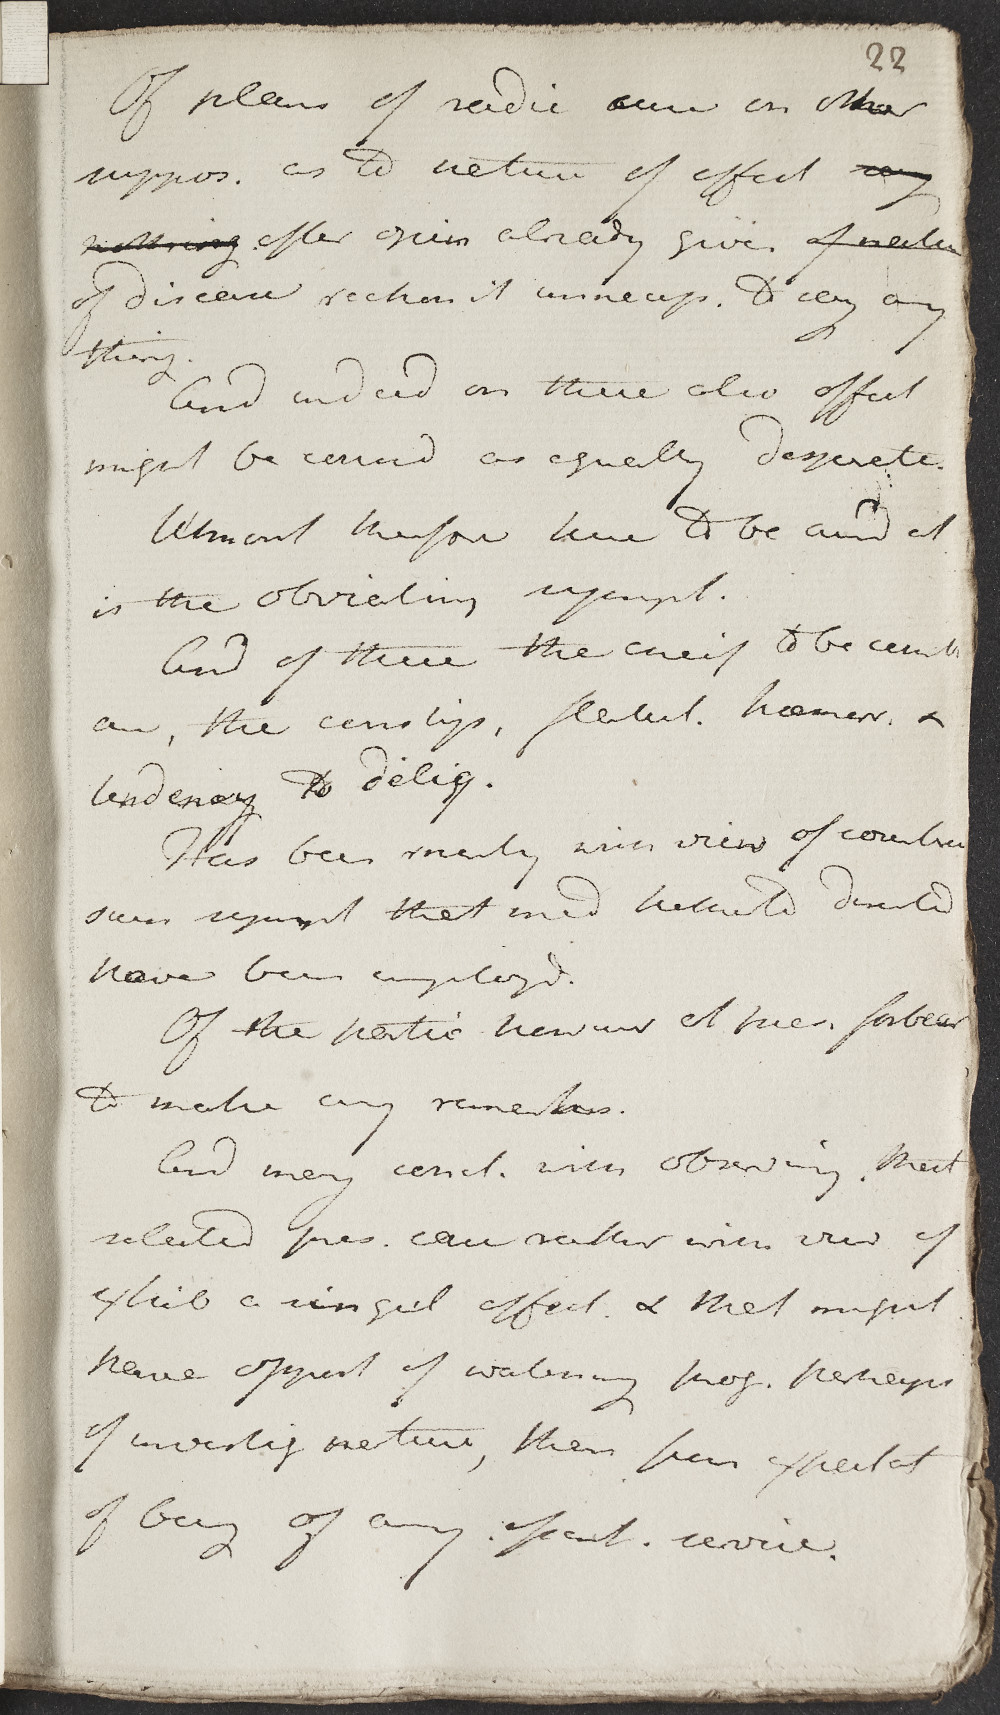 22
Of plans of radic cure on other
suppos. as to nature of effect say
nothing after opin already given of natur
of disease reckon it unnecess. to say any
thing.
And indeed on these also effect
might be consid as equally desperate.
Utmost therefore here to be aim'd at
is the obviating sympt.
And of these the chief to be comb
are, the constip, flatul. hæmorr. &
tendency to deliq.
Has been merely with view of counter
these sympt that med hitherto directed
have been employ'd.
Of the partic however at pres. forbear
to make any remarks.
And may concl. with observing, that
selected pres. case rather with view of
exhib a singul effect. & that might
have opport of watching prog. perhaps
of investig nature, then from expectat
of being of any essent. service.